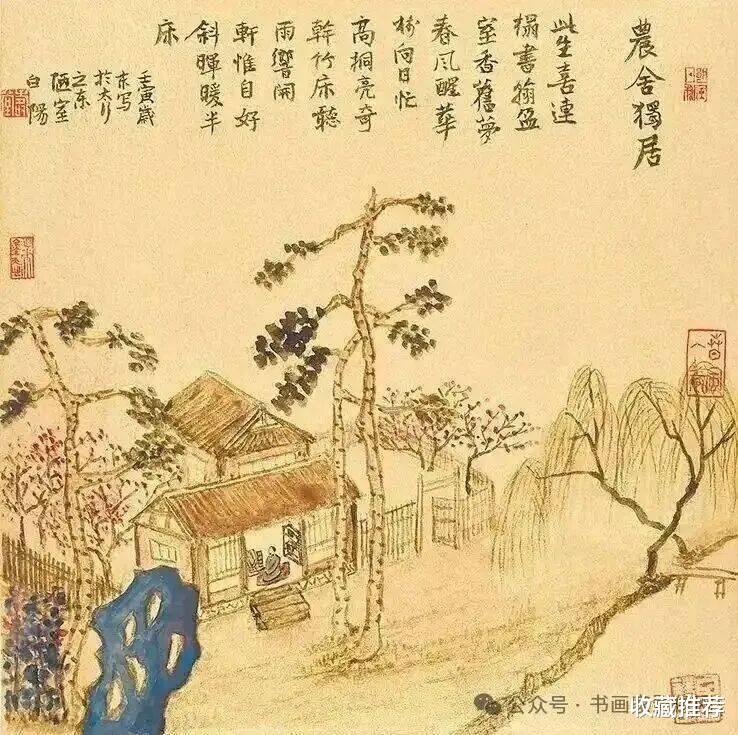 農舍獨居
此生喜連
榻書翰盈
室香舊夢
春风醒華
树向日忙
高桐亮奇
幹竹床聽
雨響閑
軒惟自好
斜暉暖半
床
壬寅歲
末写
於太行
之东
陋室
白陽
公众号·书画
收藏推荐